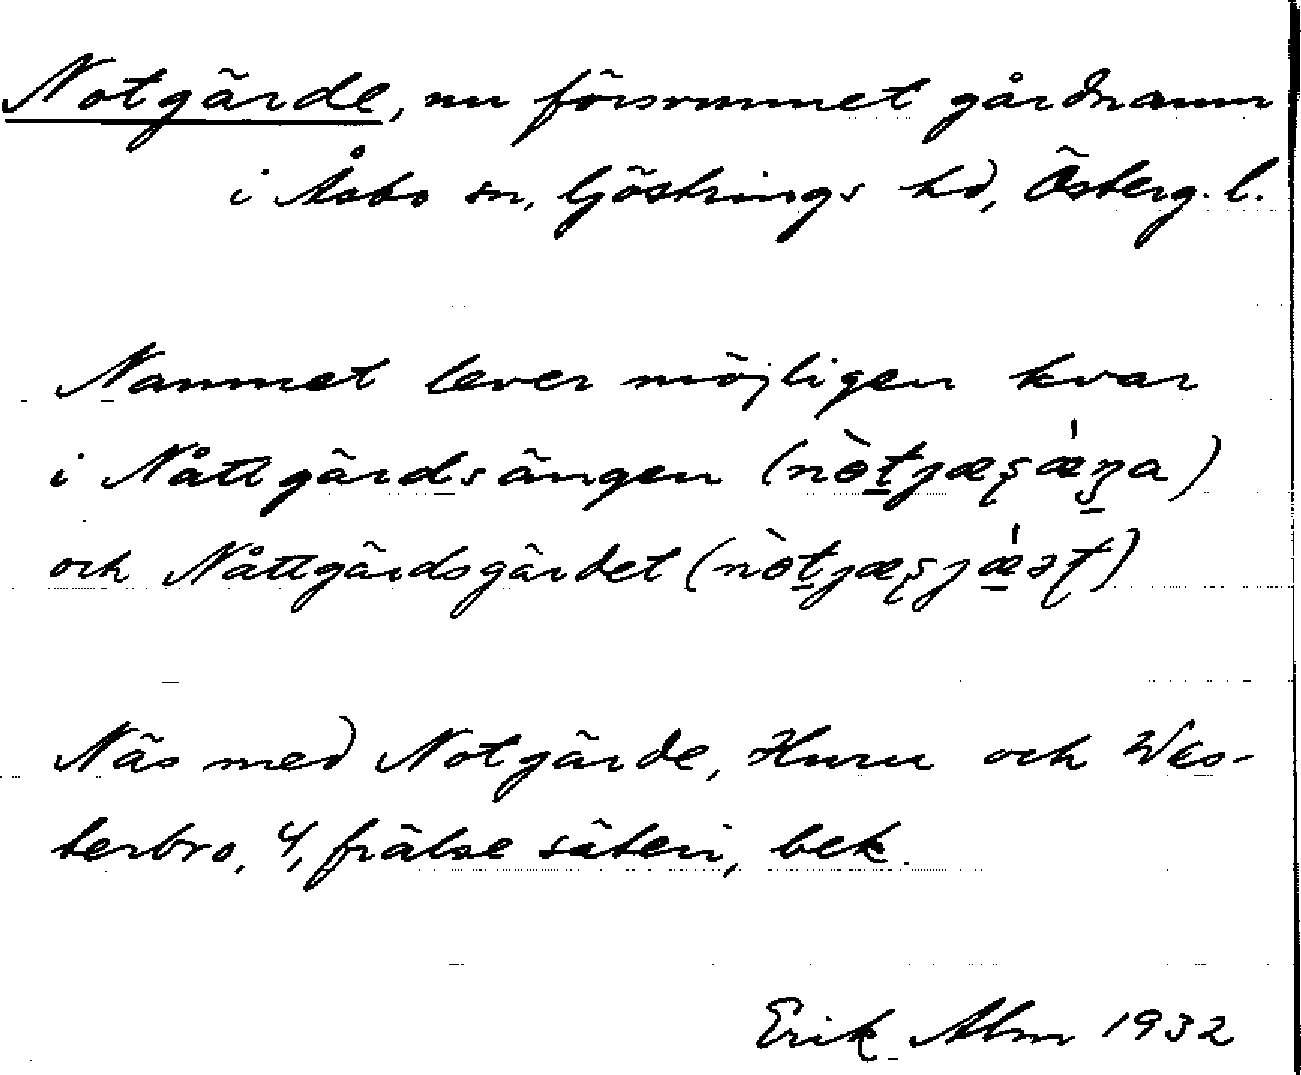 Notgärde, nu försvunnet gårdnamn
i Åsbo sn, Göstrings hd, Österg. l.
Namnet lever möjligen kvar
i Nåttgärdsängen
och Nåttgärdsgärdet
Näs med Notgärde, Huru och Wes-
terbro, 4, frälse säteri, bek.
Erik Alm 1932